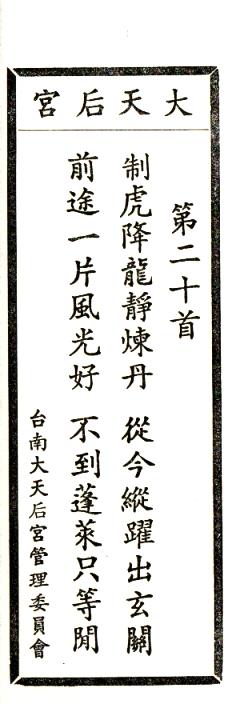 大天后宮
第二十首
制虎降龍靜煉丹 從今縱躍出玄關
前途一片風光好 不到蓬萊只等閒
台南大天后宮管理委員會